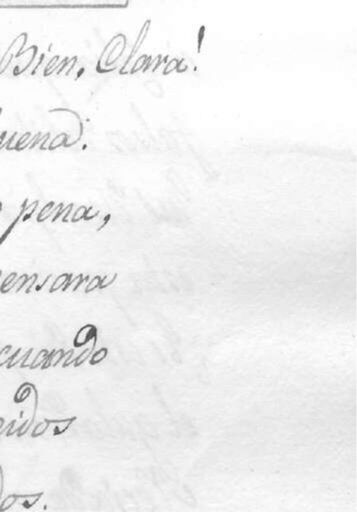 Bien, Clara!
uena.
pena,
ensara
cuando
idos
dos.